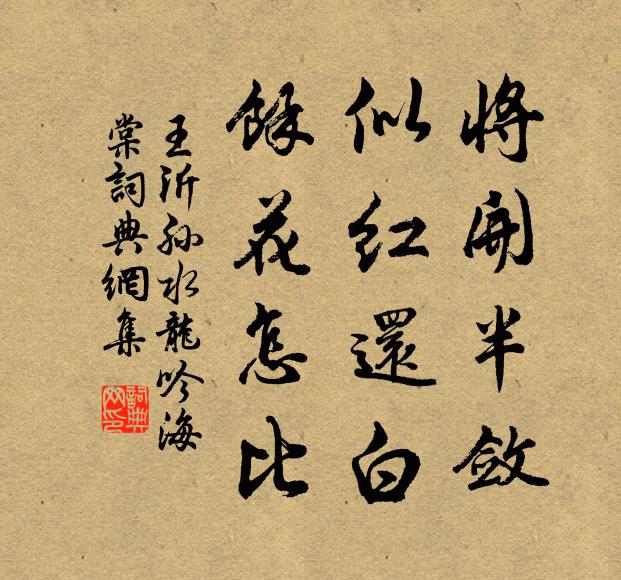 將開半斂
似紅還白
餘花怎比
王沂孫水龍吟海
棠詞典網集
詞典网印